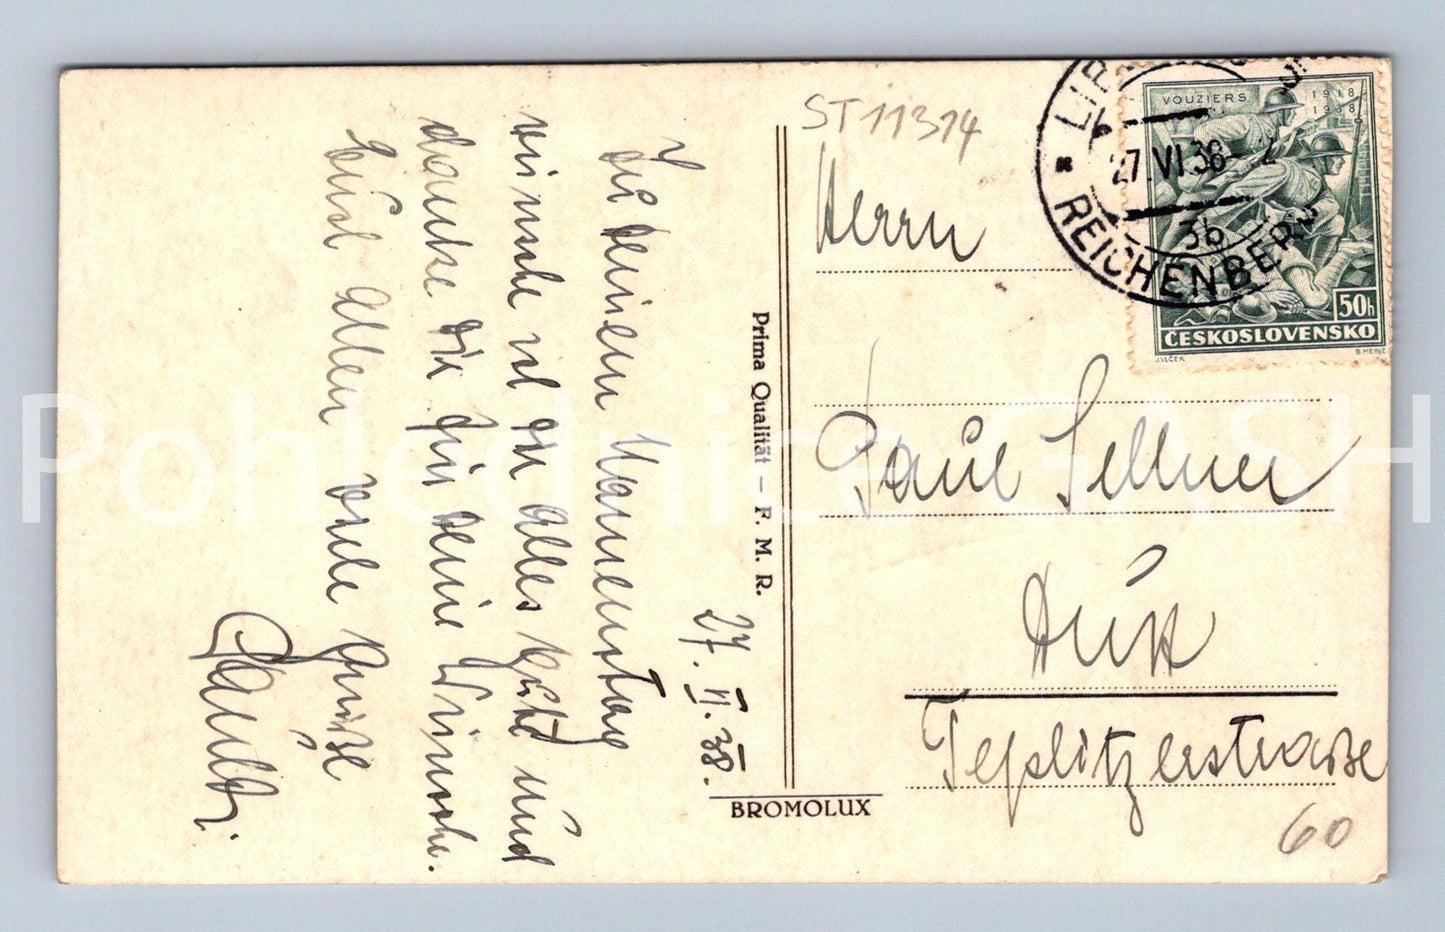 27. VI. 38.
Zu Deinem Namenstag
wünsche ich Dir alles Gute und
danke Dir für Deine Wünsche.
Euch Allen viele Grüße
Prima Qualität – F. M. R.
BROMOLUX
ST 11314
Herrn
Paul Sellner
Dux
Teplitzerstraße
60
VOUZIERS 1918
1938
50h
ČESKOSLOVENSKO
J.VLČEK B.HEINZ
27.VI.38
3b
REICHENBERG
Pohlednice GASH